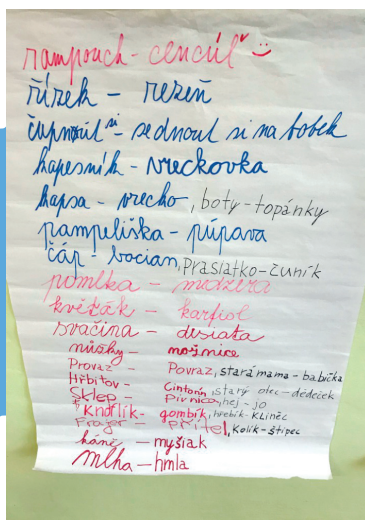 rampouch - cencúľ
řízek - rezeň
čupnout si - sednout si na bobek
kapesník - vreckovka
kapsa - vrecko, boty - topánky
pampeliška - púpava
čáp - bocian, Prasiatko - čuník
pomlka -
květák - karfiol
svačina - desiata
nůžky - nožnice
Provaz - Povraz, stará mama - babička
Hřbitov - Cintorín, starý otec - dědeček
Sklep - Pivnica, hej - jo
Knoflík - gombík, hřebík - KLiNEC
Frajer - Přítel, Kolík - štipec
káně - myšiak
mlha - hmla